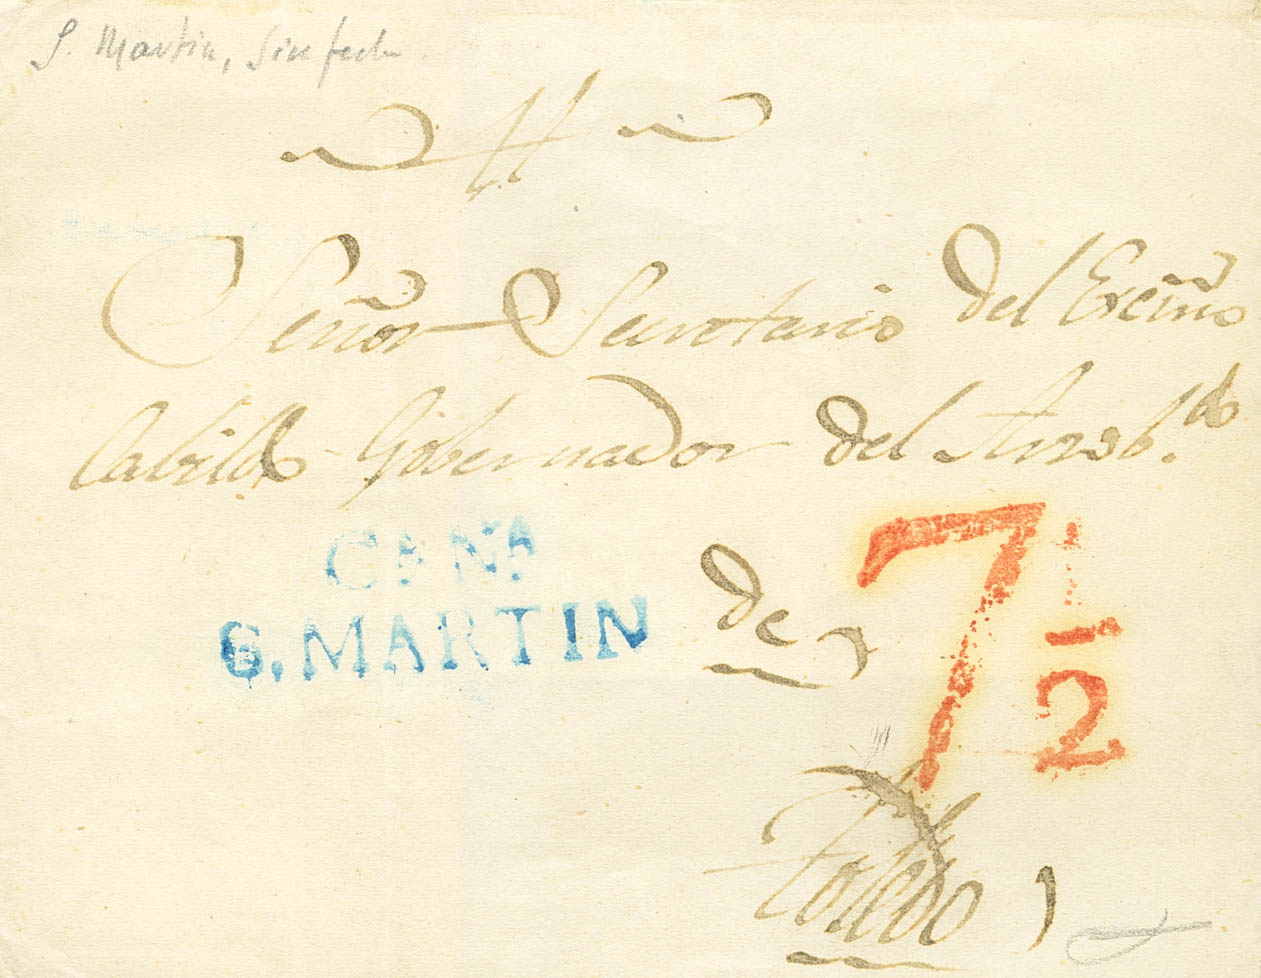 S. Martin, Sin fecha
Señor Secretario del Excmo
Cabildo Gobernador del Arzob.do
CANA
S. MARTIN
de
7 1/2
Toledo